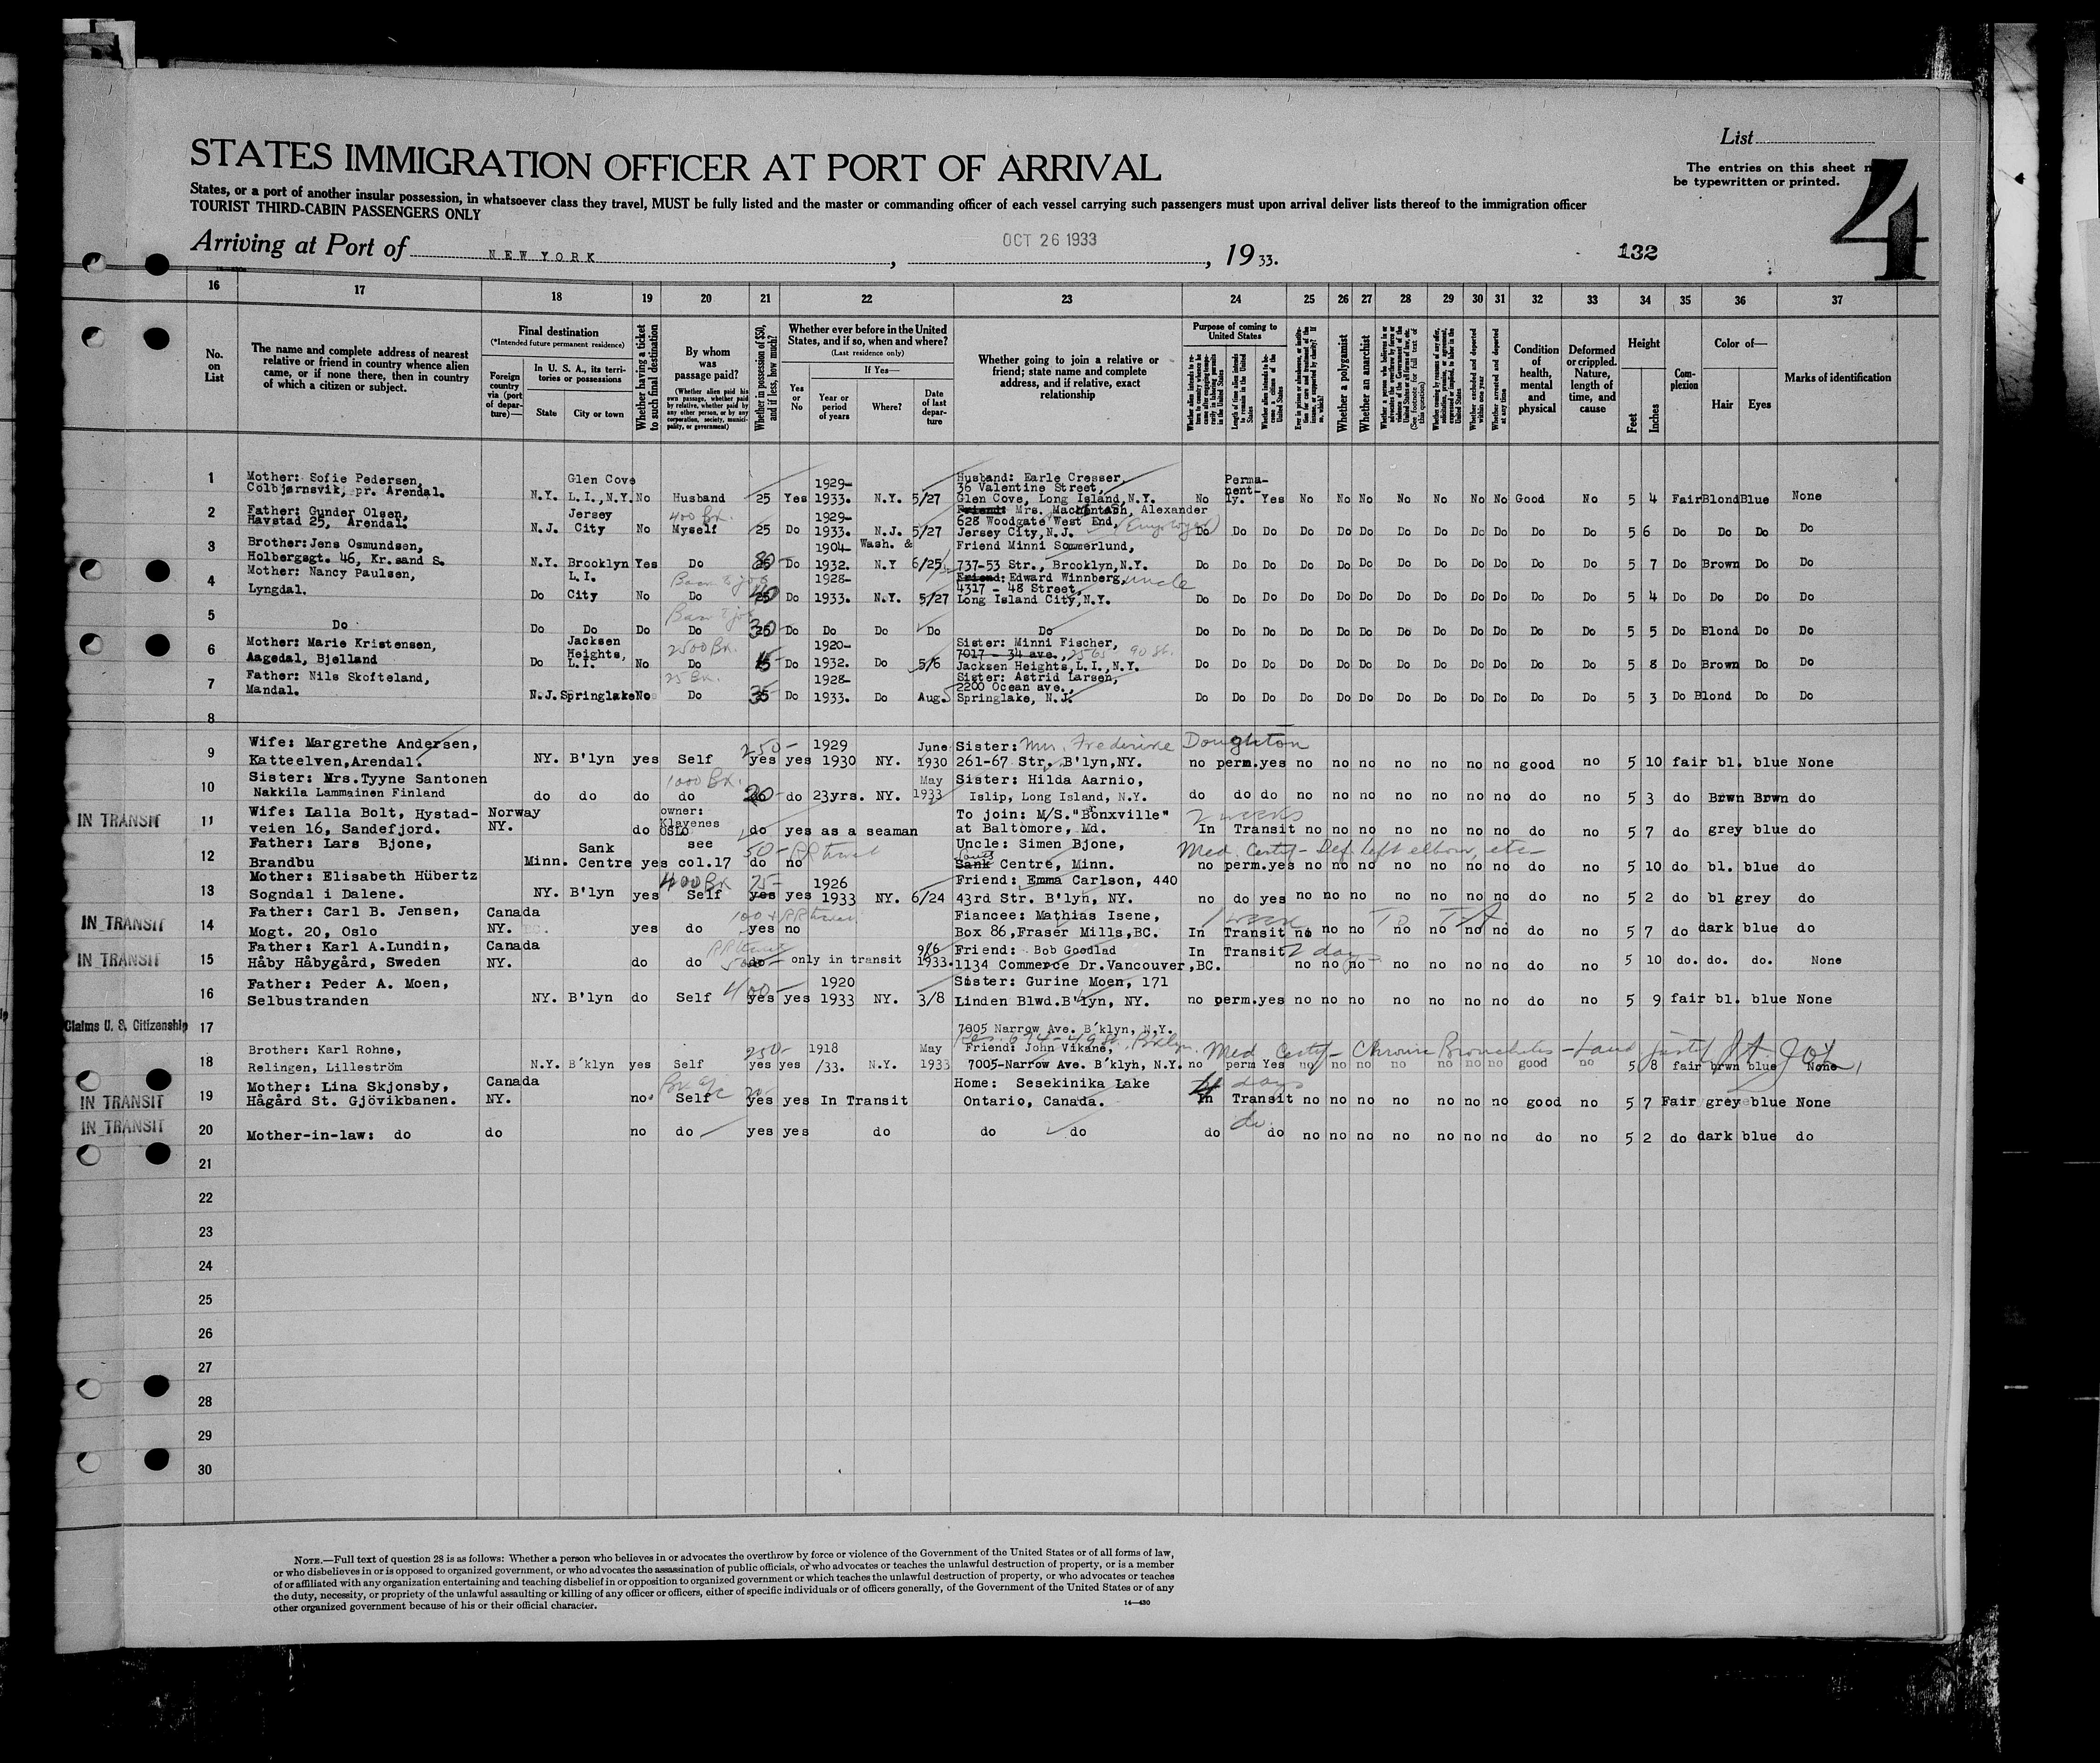 List
STATES IMMIGRATION OFFICER AT PORT OF ARRIVAL
The entries on this sheet
be typewritten or printed.
4
States, or a port of another insular possession, in whatsoever class they travel, MUST be fully listed and the master or commanding officer of each vessel carrying such passengers must upon arrival deliver lists thereof to the immigration officer
TOURIST THIRD-CABIN PASSENGERS ONLY
Arriving at Port of NEW YORK , OCT 26 1933 , 19 33. 132
16 17 18 19 20 21 22 23 24 25 26 27 28 29 30 31 32 33 34 35 36 37
No. on List
The name and complete address of nearest relative or friend in country whence alien came, or if none there, then in country of which a citizen or subject.
Final destination
(*Intended future permanent residence)
Foreign country via (port of departure)—
In U. S. A., its territories or possessions
State City or town
Whether having a ticket to such final destination
By whom was passage paid?
(Whether alien paid his own passage, whether paid by relative, whether paid by any other person, or by any corporation, society, municipality, or government)
Whether in possession of $50, and if less, how much?
Whether ever before in the United States, and if so, when and where?
(Last residence only)
If Yes—
Yes or No
Year or period of years
Where?
Date of last departure
Whether going to join a relative or friend; state name and complete address, and if relative, exact relationship
Purpose of coming to United States
Length of time alien intends to remain in the United States
Whether alien intends to become a citizen of the United States
Whether a polygamist
Whether an anarchist
Whether excluded and deported within one year
Whether arrested and deported at any time
Condition of health, mental and physical
Deformed or crippled. Nature, length of time, and cause
Height
Feet Inches
Complexion
Color of—
Hair Eyes
Marks of identification
1 Mother: Sofie Pedersen, Glen Cove 1929- Husband: Earle Cresser, Perma-
Colbjørnsvik, pr. Arendal. N.Y. L.I.,N.Y. No Husband 25 Yes 1933. N.Y. 5/27 36 Valentine Street, nent-
Glen Cove, Long Island, N.Y. No ly. Yes No No No No No No No Good No 5 4 Fair Blond Blue None
2 Father: Gunder Olsen, Jersey 400 Bk. 1929- Friend: Mrs. Mackintosh, Alexander
Havstad 25, Arendal. N.J. City No Myself 25 Do 1933. N.J. 5/27 628 Woodgate West End, (Employer)
Jersey City, N.J. Do Do Do Do Do Do Do Do Do Do Do Do 5 6 Do Do Do Do
3 Brother: Jens Osmundsen, 1904- Wash. & Friend Minni Sommerlund,
Holbergsgt. 46, Kr.sand S. N.Y. Brooklyn Yes Do Do 1932. N.Y 6/25 737-53 Str., Brooklyn, N.Y. Do Do Do Do Do Do Do Do Do Do Do Do 5 7 Do Brown Do Do
4 Mother: Nancy Paulsen, L.I. 1928- Friend: Edward Winnberg, uncle
Lyngdal. Do City No Do 25 Do 1933. N.Y. 5/27 4317 - 48 Street,
Long Island City, N.Y. Do Do Do Do Do Do Do Do Do Do Do Do 5 4 Do Do Do Do
5 Do Do Do Do Do 30 25 Do Do Do Do Do Do Do Do Do Do Do Do Do Do Do Do Do Do 5 5 Do Blond Do Do
6 Mother: Marie Kristensen, Jacksen 2500 Bk. 1920- Sister: Minni Fischer,
Aagedal, Bjelland Do Heights, L.I. No Do 15 Do 1932. Do 5/6 7017 - 34 ave., 2565 90 St.
Jacksen Heights, L.I., N.Y. Do Do Do Do Do Do Do Do Do Do Do Do 5 8 Do Brown Do Do
7 Father: Nils Skofteland, 25 Bk. 1928- Sister: Astrid Larsen,
Mandal. N.J. Springlake No Do 35 Do 1933. Do Aug. 2200 Ocean ave.,
Springlake, N.J. Do Do Do Do Do Do Do Do Do Do Do Do 5 3 Do Blond Do Do
8
9 Wife: Margrethe Andersen, 250- 1929 June Sister: Mrs. Frederine Doughton
Katteelven, Arendal. NY. B'lyn yes Self yes yes 1930 NY. 1930 261-67 Str. B'lyn, NY. no perm. yes no no no no no no no good no 5 10 fair bl. blue None
10 Sister: Mrs. Tyyne Santonen 1000 Bk. May Sister: Hilda Aarnio,
Nakkila Lammainen Finland do do do do 20 do do 23yrs. NY. 1933 Islip, Long Island, N.Y. do do do no no no no no no no do no 5 3 do Brwn Brwn do
IN TRANSIT 11 Wife: Lalla Bolt, Hystad- Norway owner: To join: M/S."Bonxville" 2 weeks
veien 16, Sandefjord. NY. do Klavenes OSLO do yes as a seaman at Baltomore, Md. In Transit no no no no no no no do no 5 7 do grey blue do
12 Father: Lars Bjone, Sank see 50- RR ticket Uncle: Simen Bjone, Med. Certif - Def. left elbow, etc
Brandbu Minn. Centre yes col.17 do no Sank Centre, Minn. no perm. yes no no no no no no no do no 5 10 do bl. blue do
13 Mother: Elisabeth Hübertz 400 Bk 75- 1926 Friend: Emma Carlson, 440
Sogndal i Dalene. NY. B'lyn yes Self yes yes 1933 NY. 6/24 43rd Str. B'lyn, NY. no do yes no no no no no no no do no 5 2 do bl grey do
IN TRANSIT 14 Father: Carl B. Jensen, Canada Fiancee: Mathias Isene, 1 week
Mogt. 20, Oslo NY. yes do yes no Box 86, Fraser Mills, BC. In Transit no no no no no no no do no 5 7 do dark blue do
IN TRANSIT 15 Father: Karl A. Lundin, Canada 9/6 Friend: Bob Goodlad In Transit 2 days
Håby Håbygård, Sweden NY. do do do only in transit 1933. 1134 Commerce Dr. Vancouver, BC. no no no no no no no do no 5 10 do. do. do. None
16 Father: Peder A. Moen, 400- 1920 Sister: Gurine Moen, 171
Selbustranden NY. B'lyn do Self yes yes 1933 NY. 3/8 Linden Blwd. B'lyn, NY. no perm. yes no no no no no no no do no 5 9 fair bl. blue None
Claims U. S. Citizenship 17 7005 Narrow Ave. B'klyn, N.Y.
18 Brother: Karl Rohne, 250- 1918 May Friend: John Vikane, Med Certif - Chronic Bronchitis
Relingen, Lilleström N.Y. B'klyn yes Self yes yes /33. N.Y. 1933 7005-Narrow Ave. B'klyn, N.Y. no perm Yes no no no no no no no good no 5 8 fair brwn blue None
IN TRANSIT 19 Mother: Lina Skjonsby, Canada Home: Sesekinika Lake days
Hågård St. Gjövikbanen. NY. no. Self yes yes In Transit Ontario, Canada. In Transit no no no no no no no good no 5 7 Fair grey blue None
IN TRANSIT 20 Mother-in-law: do do no do yes yes do do do do do do no no no no no no no do no 5 2 do dark blue do
21
22
23
24
25
26
27
28
29
30
NOTE.—Full text of question 28 is as follows: Whether a person who believes in or advocates the overthrow by force or violence of the Government of the United States or of all forms of law,
or who disbelieves in or is opposed to organized government, or who advocates the assassination of public officials, or who advocates or teaches the unlawful destruction of property, or is a member
of or affiliated with any organization entertaining and teaching disbelief in or opposition to organized government or which teaches the unlawful destruction of property, or who advocates or teaches
the duty, necessity, or propriety of the unlawful assaulting or killing of any officer or officers, either of specific individuals or of officers generally, of the Government of the United States or of any
other organized government because of his or their official character.
14—430